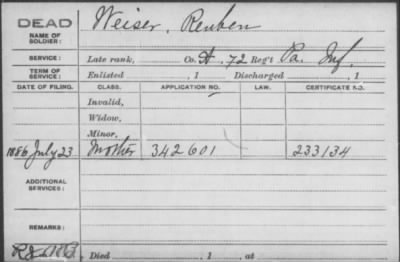 DEAD
NAME OF SOLDIER:
Weiser, Reuben
SERVICE:
Late rank, Co. H. 72 Reg't Pa. Inf.
TERM OF SERVICE:
Enlisted , 1 Discharged , 1
DATE OF FILING. CLASS. APPLICATION NO. LAW. CERTIFICATE NO.
Invalid,
Widow,
Minor,
1886 July 23 Mother 342601 233134
ADDITIONAL SERVICES:
REMARKS:
Died , 1 , at